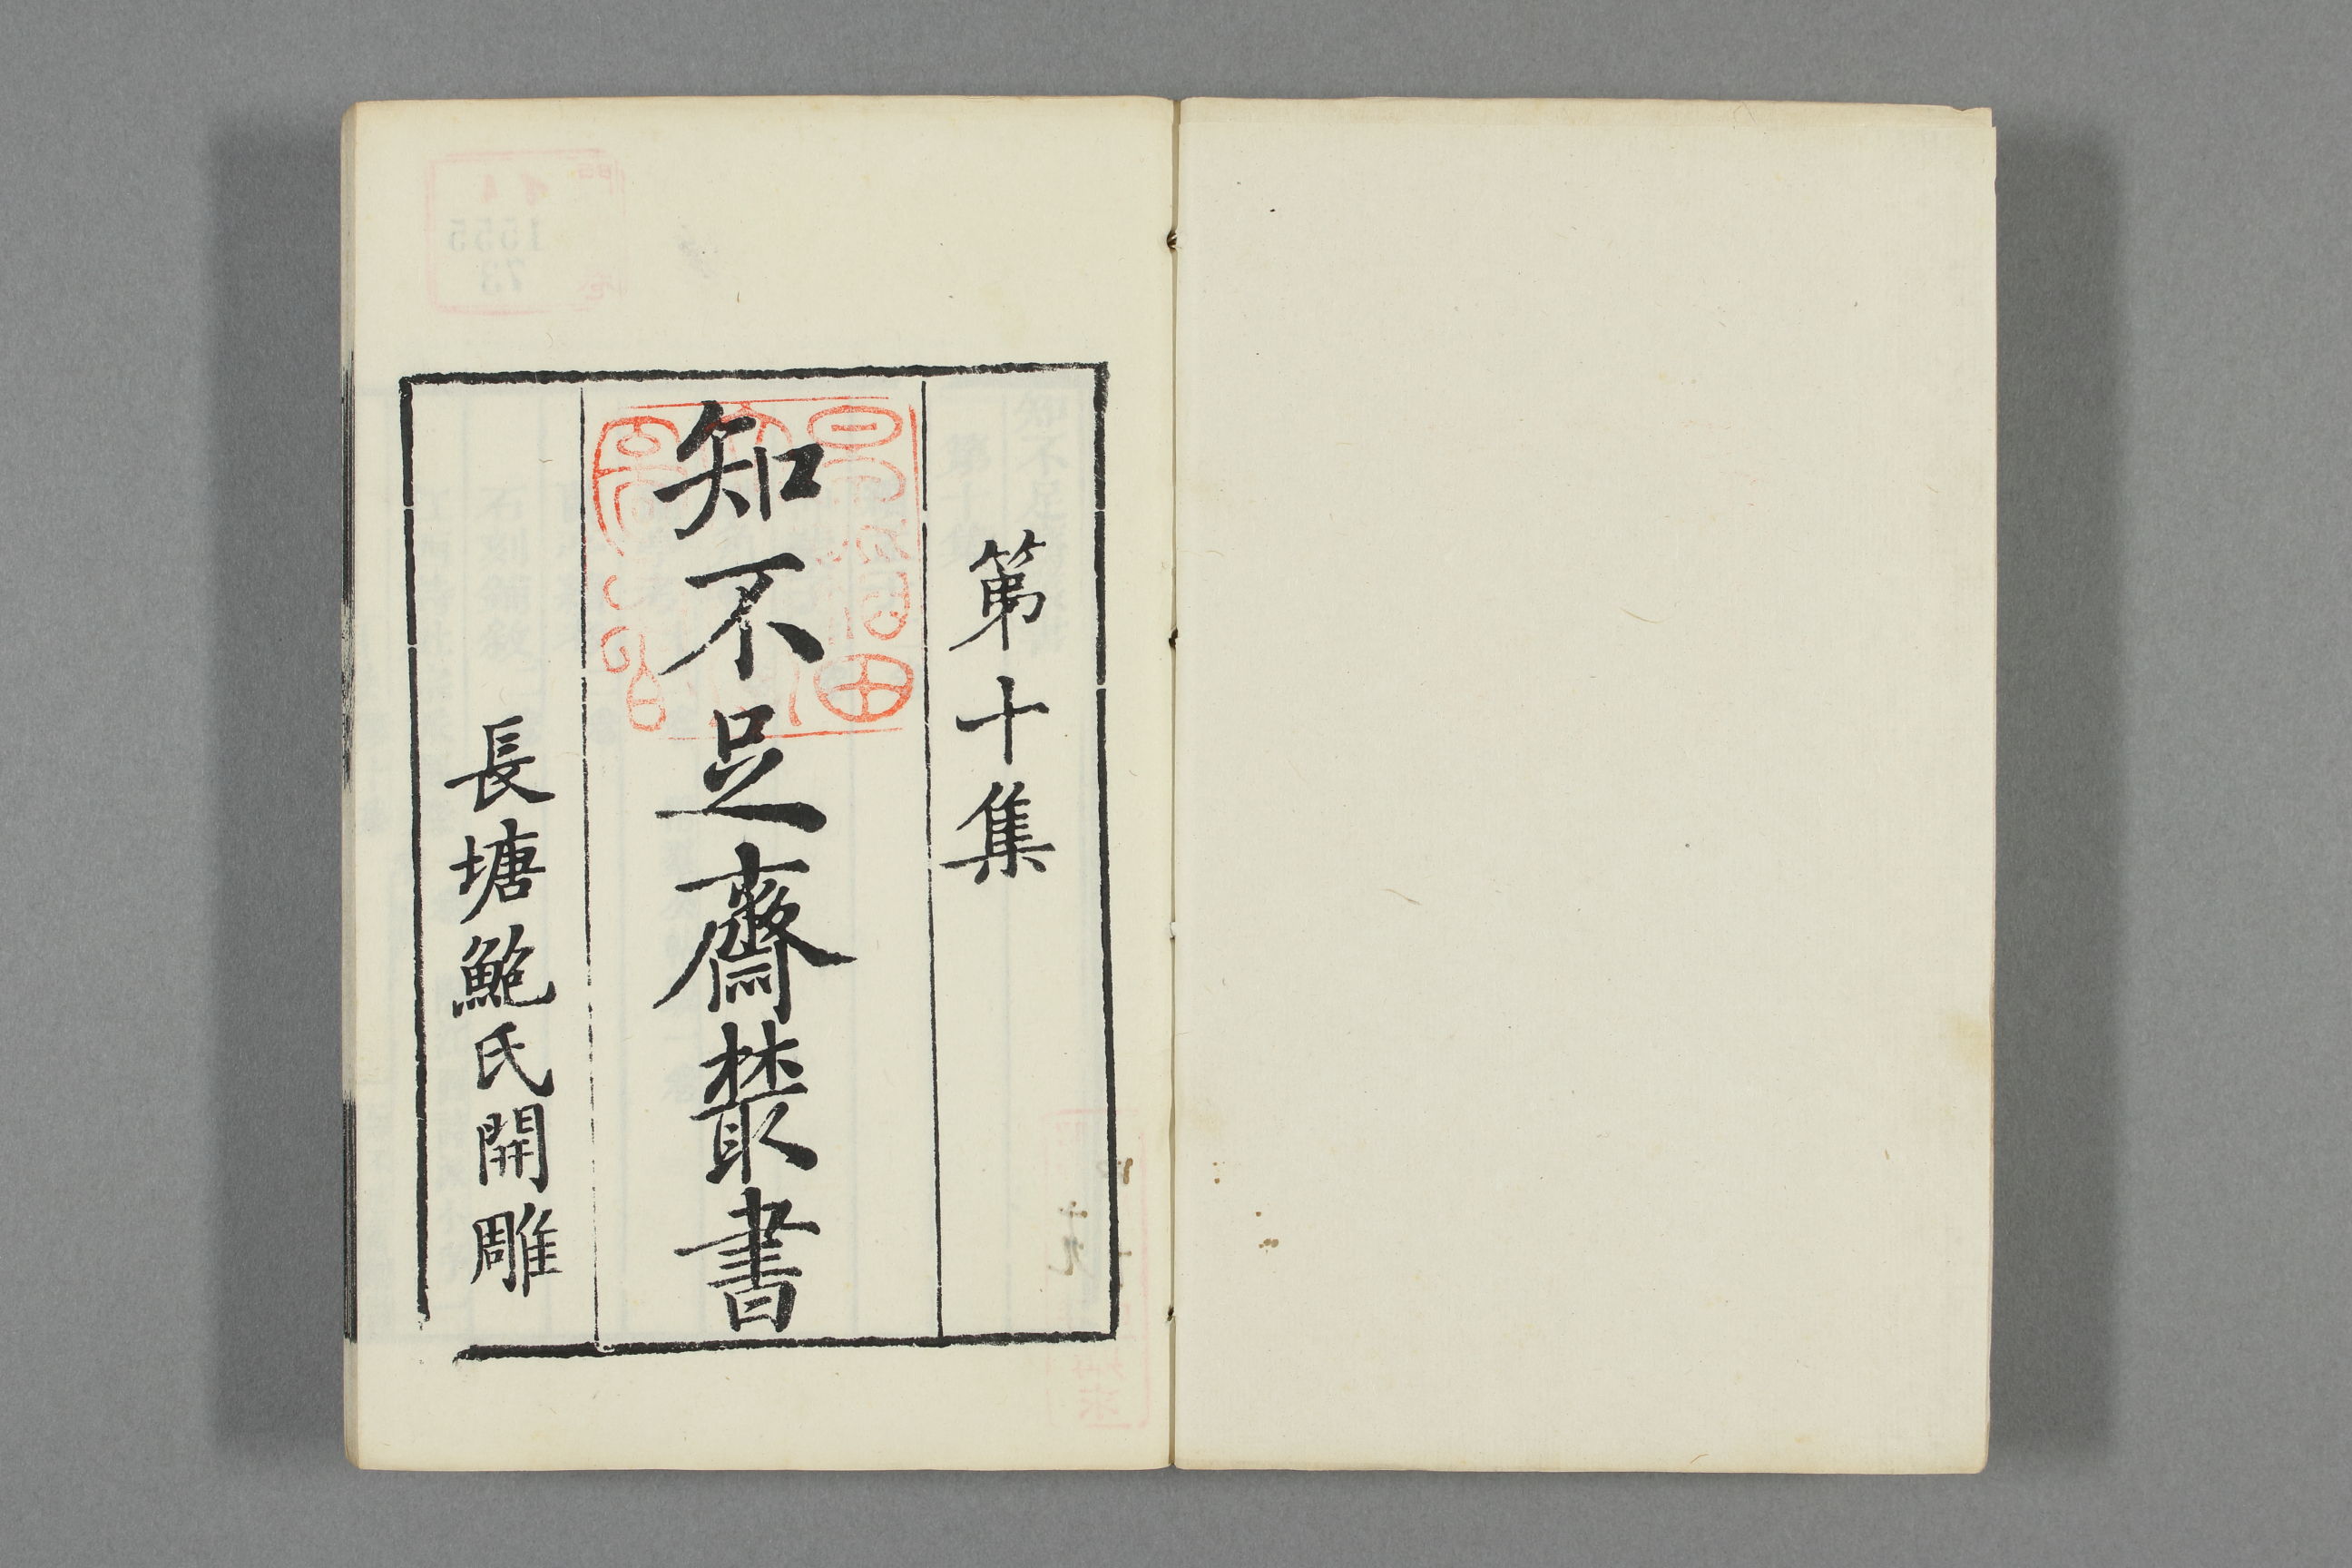 第十集
知不足齋叢書
長塘鮑氏開雕